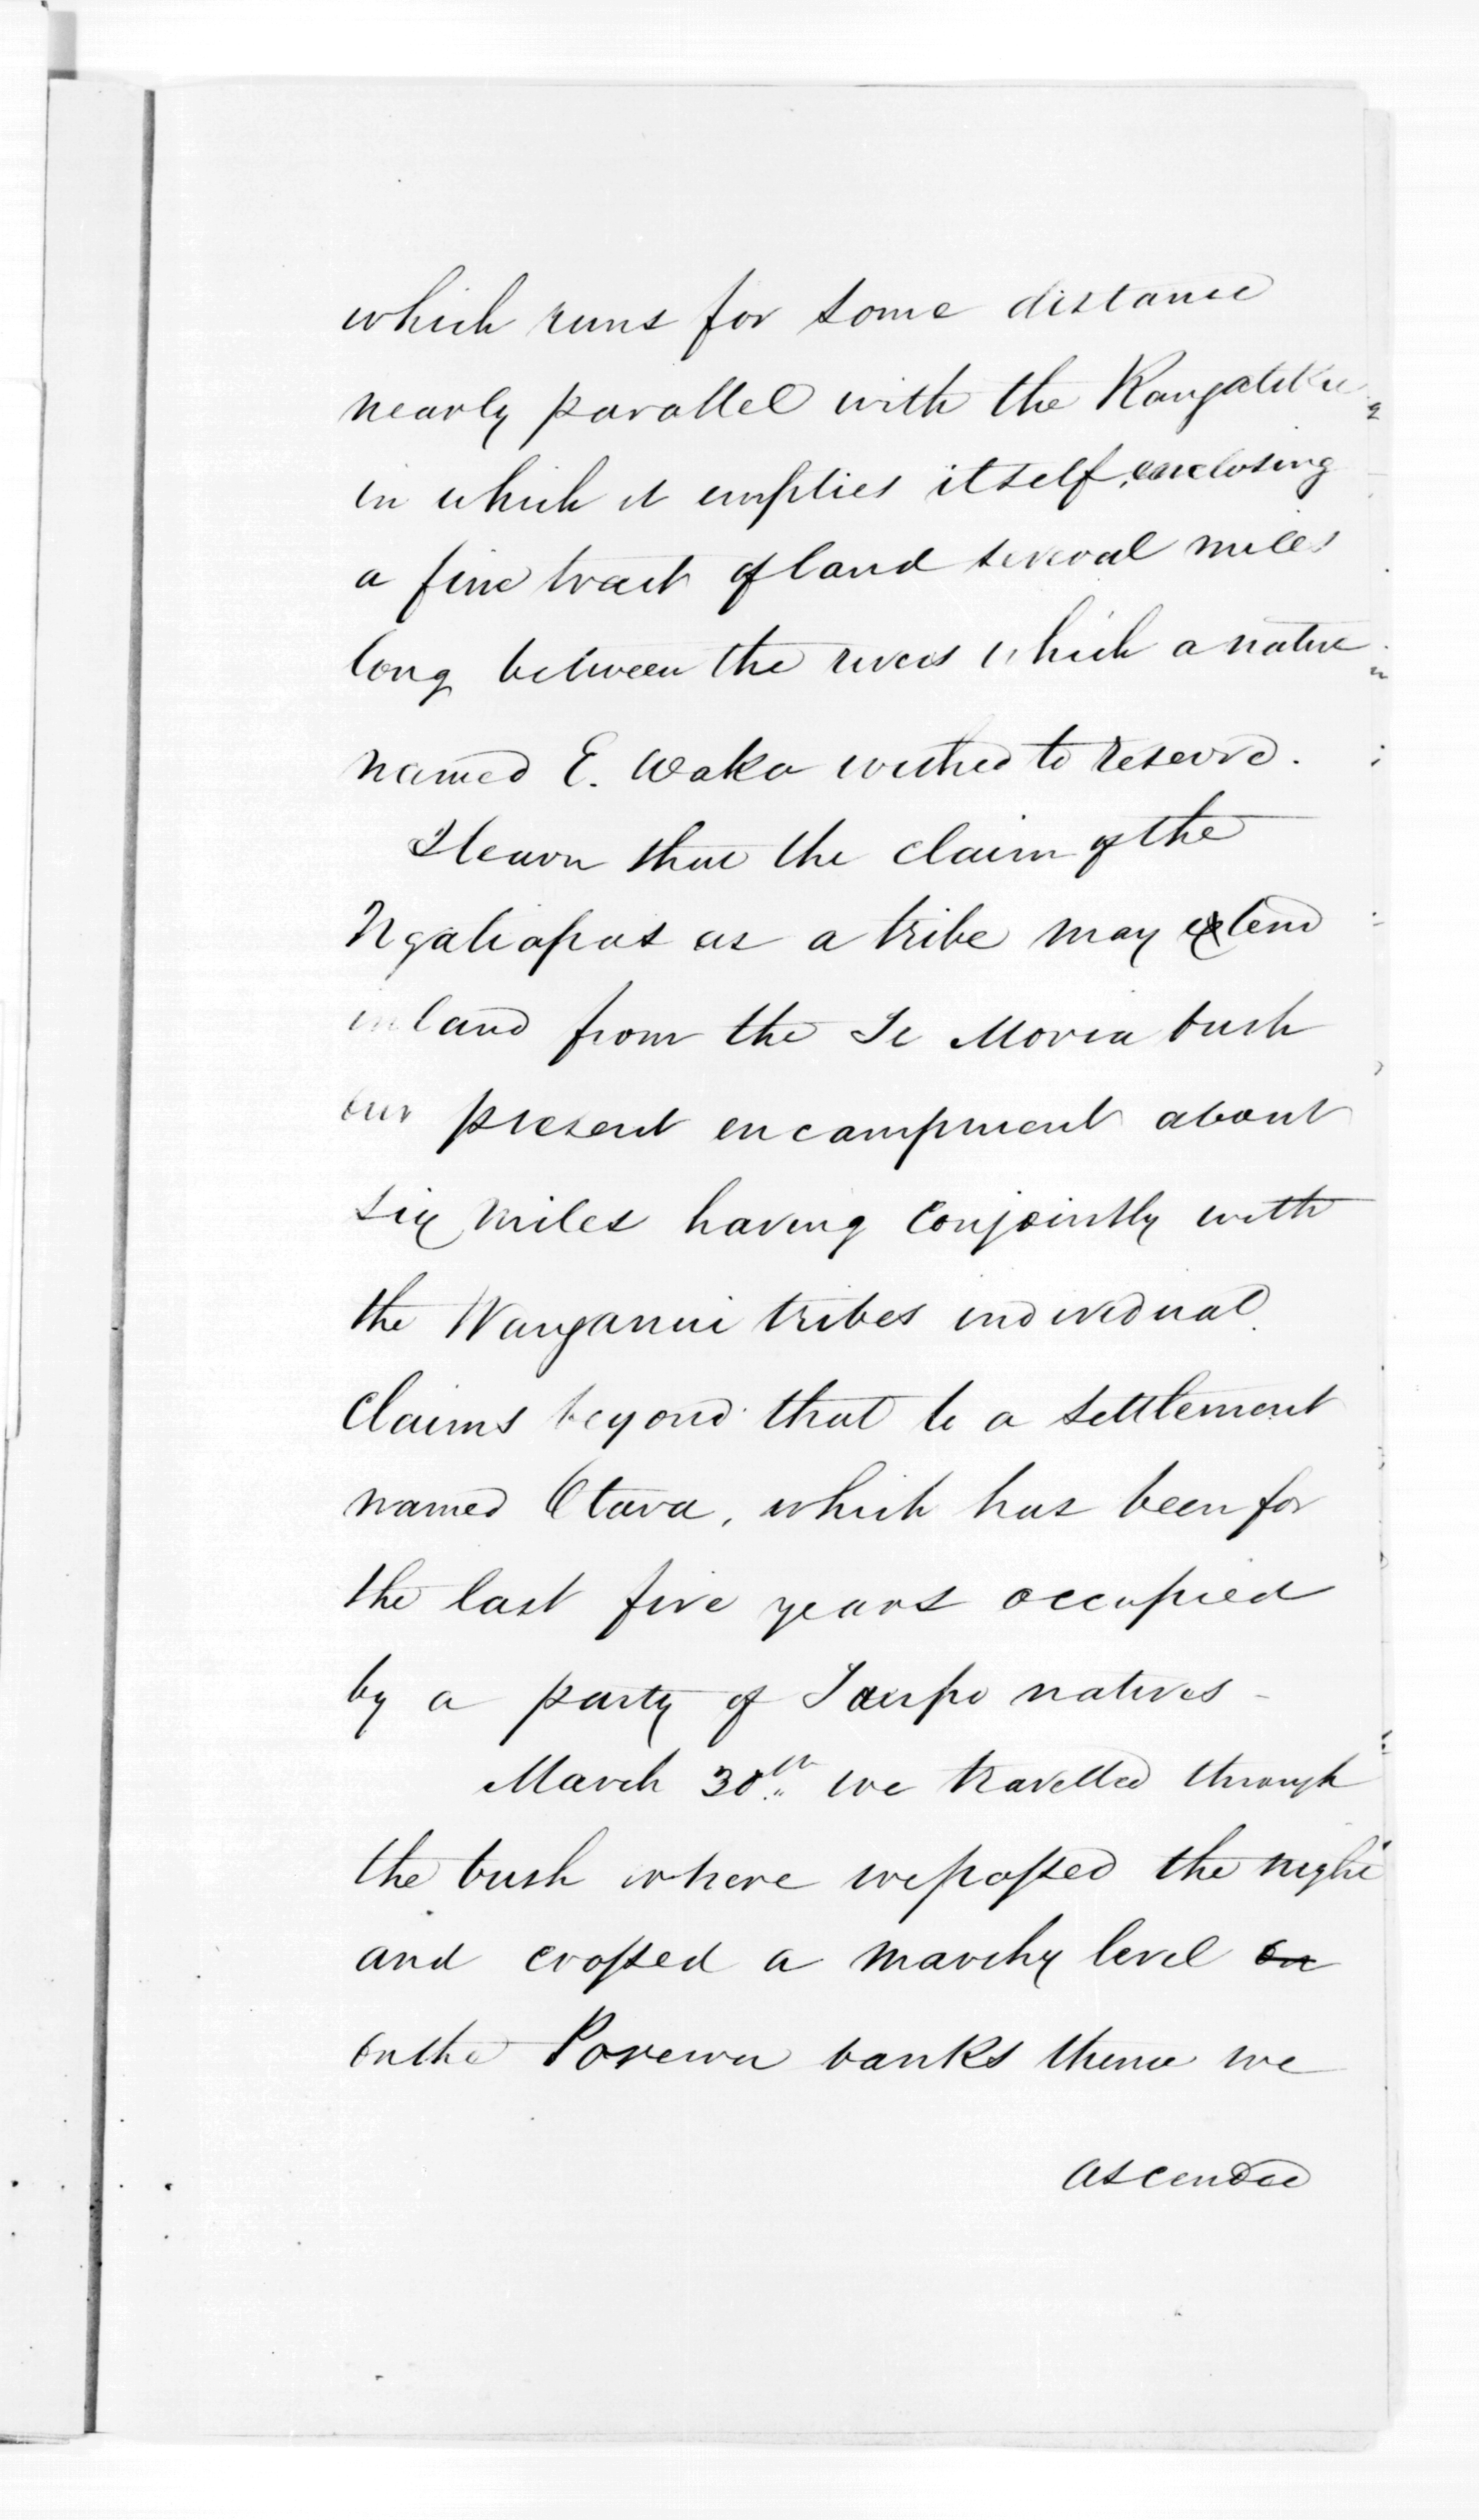 which runs for some distance
nearly parallel with the Rangatikei
in which it empties itself, enclosing
a fine tract of land several miles
long between the rivers which a native
named E. Waka wished to reserve.
I learn that the claim of the
Ngatiapas as a tribe may extend
inland from the Te Moria bush
our present encampment about
six miles having conjointly with
the Wanganui tribes individual
claims beyond that to a settlement
named Otara, which has been for
the last five years occupied
by a party of Taupo natives -
March 30th.. we travelled through
the bush where we passed the night
and crossed a marshy level on
on the Porewa banks thence we
ascended